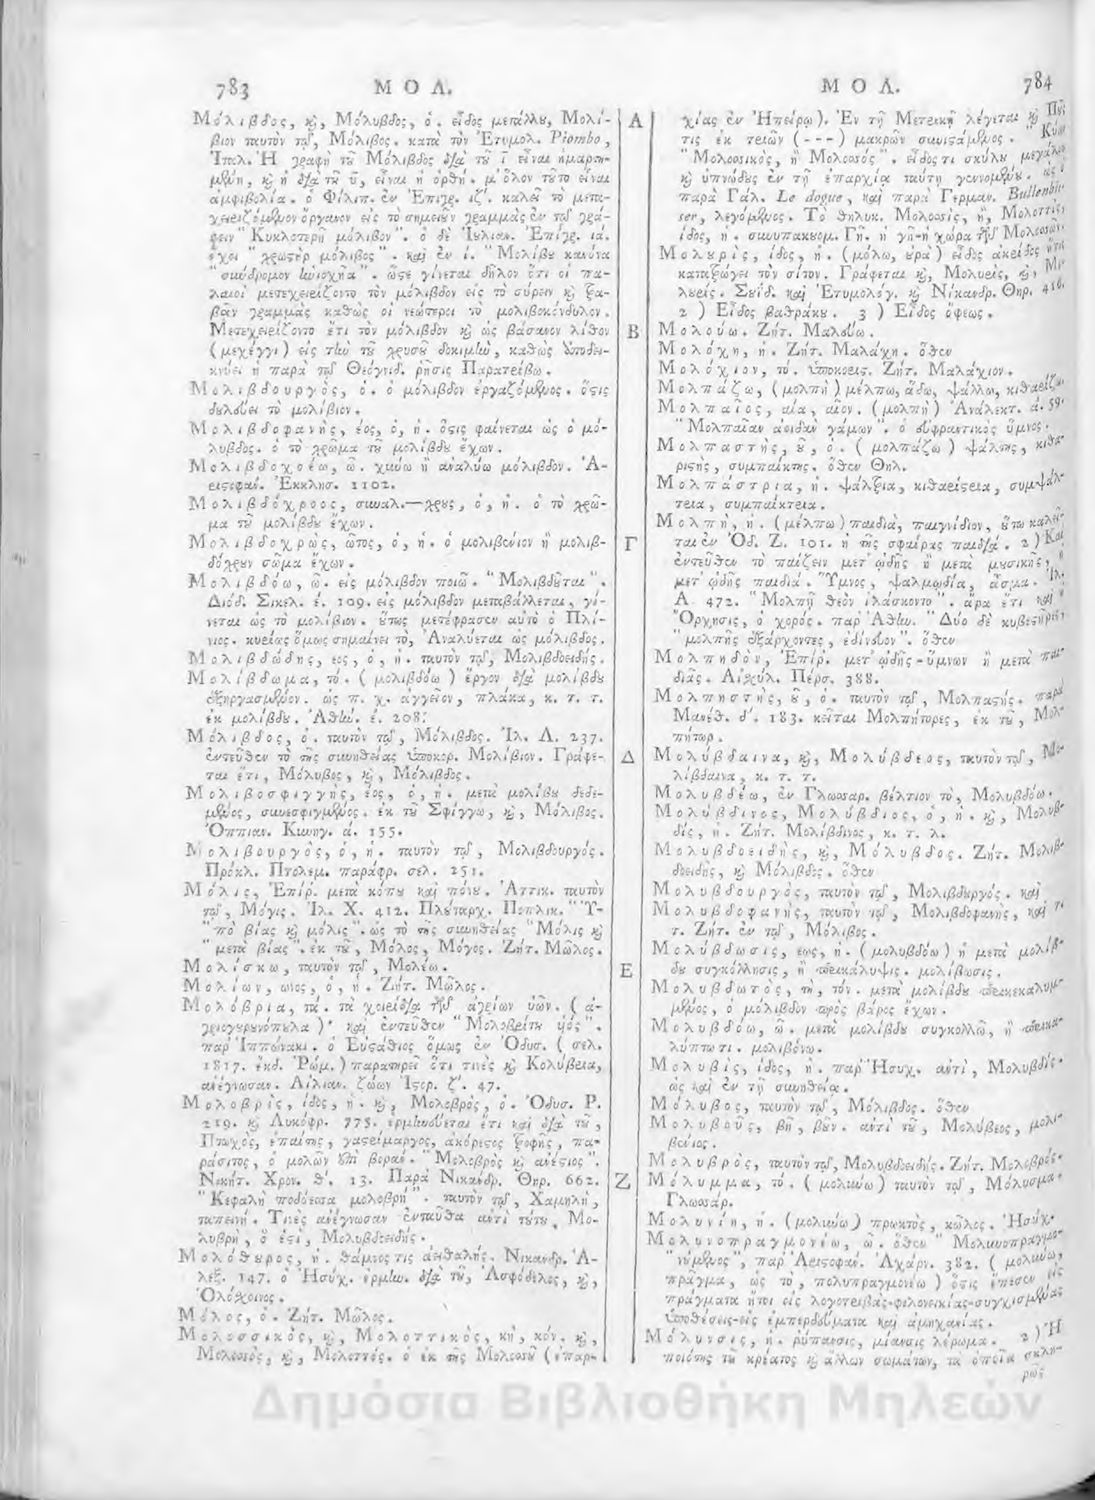 783 Μ Ο Λ.
Μόλιβδος, ϗ, Μόλυβδος, ὁ. εἶδος μετάλλȣ, Μολί-
βιον ταυτὸν τῷ, Μόλιβος. κατὰ τὸν Ἐτυμολ. Piombo,
Ἰταλ. Ἡ γραφὴ τȣ͂ Μόλιβδος διὰ τȣ͂ ῑ εἶναι ἡμαρτη-
μένη, ϗ ἡ διὰ τȣ͂ ῡ, εἶναι ἡ ὀρθή. μ' ὅλον τȣ͂το εἶναι
ἀμφιβολία. ὁ Φίλιπ. ἐν Ἐπιγρ. ιζ'. καλεῖ τὸ μετα-
χειριζόμενον ὄργανον εἰς τὸ σημειȣ͂ν γραμμὰς ἐν τῷ γρά-
φειν " Κυκλοτερῆ μόλιβον ". ὁ δὲ Ἰȣλιαν. Ἐπίγρ. ιά.
ἔχει " χρωστὴρ μόλιβος ". καὶ ἐν ί. " Μολίβȣ κανόνα
" σύνδρομον ἡνιοχῆα ". ὥστε γίνεται δῆλον ὅτι οἱ πα-
λαιοὶ μετεχειρίζοντο τὸν μόλιβδον εἰς τὸ σύρειν ϗ τρα-
βᾷν γραμμὰς καθὼς οἱ νεώτεροι τὸ μολιβοκόνδυλον.
Μετεχειρίζοντο ἔτι τὸν μόλιβδον ϗ ὡς βάσανον λίθον
( μεχέγγι ) εἰς τὴν τȣ͂ χρυσȣ͂ δοκιμὴν, καθὼς ὑποδει-
κνύει ἡ παρὰ τῷ Θεόγνιδ. ῥῆσις Παρατρίβω.
Μολιβδουργὸς, ὁ. ὁ μόλιβδον ἐργαζόμενος. ὅστις
δȣλεύει τὸ μολίβιον.
Μολιβδοφανὴς, έος, ὁ, ἡ. ὅστις φαίνεται ὡς ὁ μό-
λυβδος. ὁ τὸ χρῶμα τȣ͂ μολίβδȣ ἔχων.
Μολιβδοχοέω, ῶ. χύνω ἢ ἀναλύω μόλιβδον. Ἀ-
ριστοφάν. Ἐκκλησ. 1102.
Μολιβδόχροος, συναλ.—χρȣς, ὁ, ἡ. ὁ τὸ χρῶ-
μα τȣ͂ μολίβδȣ ἔχων.
Μολιβδοχρὼς, ῶτος, ὁ, ἡ. ὁ μολιβένιον ἢ μολιβ-
δόχρȣν σῶμα ἔχων.
Μολιβδόω, ῶ. εἰς μόλιβδον ποιῶ. " Μολιβδȣ͂ται ".
Διόδ. Σικελ. έ. 109. εἰς μόλιβδον μεταβάλλεται, γί-
νεται ὡς τὸ μολίβιον. ȣ̔́τως μετέφρασεν αὐτὸ ὁ Πλί-
νιος. κυρίως ὅμως σημαίνει τὸ, Ἀναλύεται ὡς μόλιβδος.
Μολιβδώδης, εος, ὁ, ἡ. ταυτὸν τῷ, Μολιβδοειδής.
Μολίβδωμα, τό. ( μολιβδόω ) ἔργον διὰ μολίβδȣ
ἐξηργασμένον. ὡς π. χ. ἀγγεῖον, πλάκα, κ. τ. τ.
ἐκ μολίβδȣ. Ἀθήν. έ. 208.
Μόλιβδος, ὁ. ταυτὸν τῷ, Μόλιβδος. Ἰλ. Λ. 237.
ἐντεῦθεν τὸ τῆς συνηθείας ὑποκορ. Μολίβιον. Γράφε-
ται ἔτι, Μόλυβος, ϗ, Μόλιβδος.
Μολιβοσφιγγὴς, έος, ὁ, ἡ. μετὰ μολίβȣ δεδε-
μένος, συνεσφιγμένος. ἐκ τȣ͂ Σφίγγω, ϗ, Μόλιβος.
Ὀππιαν. Κυνηγ. ά. 155.
Μολιβουργὸς, ὁ, ἡ. ταυτὸν τῷ, Μολιβδουργός.
Πρόκλ. Πτολεμ. παράφρ. σελ. 251.
Μόλις, Ἐπίρ. μετὰ κόπȣ καὶ πόνȣ. Ἀττικ. ταυτὸν
τῷ, Μόγις. Ἰλ. Χ. 412. Πλȣ́ταρχ. Ποπλικ. " Ὑ-
" πὸ βίας ϗ μόλις ". ὡς τὸ τῆς συνηθείας " Μόλις ϗ
" μετὰ βίας ". ἐκ τȣ͂, Μόλος, Μόγος. Ζήτ. Μῶλος.
Μολίσκω, ταυτὸν τῷ, Μολέω.
Μολίων, ωνος, ὁ, ἡ. Ζήτ. Μῶλος.
Μολόβρια, τά. τὰ χοιρίδια τῶν ἀγρίων ὑῶν. ( ἀ-
γριογȣρȣνόπȣλα )· καὶ ἐντεῦθεν " Μολοβρίτης ὑός ".
παρ' Ἱππώνακι. ὁ Εὐστάθιος ὅμως ἐν Ὀδυσ. ( σελ.
1817. ἐκδ. Ῥώμ. ) παρατηρεῖ ὅτι τινὲς ϗ Κολύβρια,
ἀνέγνωσαν. Αἰλιαν. ζώων Ἱστορ. ζ'. 47.
Μολοβρὶς, ίδος, ἡ. ϗ, Μολοβρὸς, ὁ. Ὀδυσ. Ρ.
219. ϗ Λυκόφρ. 775. ἑρμηνεύεται ἔτι καὶ διὰ τȣ͂,
Πτωχὸς, ἐπαίτης, γαστρίμαργος, ἀκόρεστος τροφῆς, πα-
ράσιτος, ὁ μολῶν ἐπὶ βοράν. " Μολοβρὸς ϗ ἀνέστιος ".
Νικήτ. Χρον. θ'. 13. Παρὰ Νικάνδρ. Θηρ. 662.
" Κεφαλὴ ποδόεσσα μολοβρὴ ". ταυτὸν τῷ, Χαμηλὴ,
ταπεινή. Τινὲς ἀνέγνωσαν ἐνταῦθα ἀντὶ τȣ́τȣ, Μο-
λυβρὴ, ὅ ἐστι, Μολυβδοειδής.
Μολόθȣρος, ἡ. θάμνος τις ἀειθαλής. Νικανδρ. Ἀ-
λεξ. 147. ὁ Ἡσύχ. ἑρμην. διὰ τȣ͂, Ἀσφόδελος, ϗ,
Ὁλόχοινος.
Μόλος, ὁ. Ζήτ. Μῶλος.
Μολοσσικὸς, ϗ, Μολοττικὸς, κὴ, κόν. ϗ,
Μολοσσὸς, ϗ, Μολοττός. ὁ ἐκ τῆς Μολοσσȣ͂ ( ἐπαρ-
Α
Β
Γ
Δ
Ε
Ζ
Μ Ο Λ. 784
χίας ἐν Ἠπείρῳ ). Ἐν τῇ Μετρικῇ λέγεται ϗ Πȣ́ς
τις ἐκ τριῶν ( - - - ) μακρῶν συνιστάμενος.
" Μολοσσικὸς, ἢ Μολοσσός ". εἶδός τι σκύλȣ μεγάλȣ
ϗ ὑπνώδȣς ἐν τῇ ἐπαρχίᾳ ταύτῃ γεννομένȣ.
παρὰ Γάλ. Le dogue, καὶ παρὰ Γερμαν. Bullenbie-
ser, λεγόμενος. Τὸ θηλυκ. Μολοσσὶς, ἢ, Μολοττὶς,
ίδος, ἡ. συνυπακȣομ. Γῆ. ἡ γῆ-ἡ χώρα τῶν Μολοσσῶν.
Μολȣρὶς, ίδος, ἡ. ( μόλω, ȣ̓ρὰ ) εἶδος ἀκρίδος ἥτις
κατατρώγει τὸν σίτον. Γράφεται ϗ, Μολυρὶς, ϗ, Με-
λȣρίς. Σȣΐδ. καὶ Ἐτυμολόγ. ϗ Νίκανδρ. Θηρ. 416.
2 ) Εἶδος βαθράκȣ. 3 ) Εἶδος ὄφεως.
Μολούω. Ζήτ. Μαλεύω.
Μολόχη, ἡ. Ζήτ. Μαλάχη. ὅθεν
Μολόχιον, τό. ὑποκορισ. Ζήτ. Μαλάχιον.
Μολπάζω, ( μολπὴ ) μέλπω, ᾄδω, ψάλλω, κιθαρίζω.
Μολπαῖος, αία, αῖον. ( μολπὴ ) Ἀνάλεκτ. ά. 59.
" Μολπαῖαν ἀοιδὰν γάμων ". ὁ εὐφραντικὸς ὕμνος.
Μολπαστὴς, ȣ͂, ὁ. ( μολπάζω ) ψάλτης, κιθα-
ριστὴς, συμπαίκτης. ὅθεν Θηλ.
Μολπάστρια, ἡ. ψάλτρια, κιθαρίστρια, συμψάλ-
τρια, συμπαίκτρια.
Μολπὴ, ἡ. ( μέλπω ) παιδιὰ, παιγνίδιον, ȣ̔́τω καλεῖ-
ται ἐν Ὀδ. Ζ. 101. ἡ τῆς σφαίρας παιδιά. 2 ) Καὶ
ἐντεῦθεν τὸ παίζειν μετ' ᾠδῆς ἢ μετὰ μȣσικῆς, ἡ
μετ' ᾠδῆς παιδιά. Ὕμνος, ψαλμῳδία, ᾆσμα. Ἰλ.
Α. 472. " Μολπῇ θεὸν ἱλάσκοντο ". ἄρα ἔτι καὶ
Ὄρχησις, ὁ χορός. παρ' Ἀθην. " Δύο δὲ κυβιστητῆρε
" μολπῆς ἐξάρχοντες, ἐδίνευον ". ὅθεν
Μολπηδὸν, Ἐπίρ. μετ' ᾠδῆς-ὕμνων ἢ μετὰ παι-
διᾶς. Αἰσχύλ. Πέρσ. 388.
Μολπηστὴς, ȣ͂, ὁ. ταυτὸν τῷ, Μολπαστής. παρὰ
Μανέθ. δ'. 183. κεῖται Μολπήτορες, ἐκ τȣ͂, Μολ-
πήτωρ.
Μολύβδαινα, ϗ, Μολύβδεος, ταυτὸν τῷ, Μο-
λίβδαινα, κ. τ. τ.
Μολυβδέω, ἐν Γλωσσαρ. βέλτιον τὸ, Μολυβδόω.
Μολύβδινος, Μολύβδιος, ὁ, ἡ. ϗ, Μολυβ-
δὶς, ἡ. Ζήτ. Μολίβδινος, κ. τ. λ.
Μολυβδοειδὴς, ϗ, Μόλυβδος. Ζήτ. Μολιβ-
δοειδὴς, ϗ Μόλιβδος. ὅθεν
Μολυβδουργὸς, ταυτὸν τῷ, Μολιβδȣργός. καὶ
Μολυβδοφανὴς, ταυτὸν τῷ, Μολιβδοφανὴς, καὶ τ.
τ. Ζήτ. ἐν τῷ, Μόλιβος.
Μολύβδωσις, εως, ἡ. ( μολυβδόω ) ἡ μετὰ μολίβ-
δȣ συγκόλλησις, ἢ περικάλυψις. μολίβωσις.
Μολυβδωτὸς, τὴ, τόν. μετὰ μολίβδȣ περικεκαλυμ-
μένος, ὁ μόλιβδον πρὸς βάρος ἔχων.
Μολυβδόω, ῶ. μετὰ μολίβδȣ συγκολλῶ, ἢ περικα-
λύπτω τι. μολιβόνω.
Μολυβὶς, ίδος, ἡ. παρ' Ἡσυχ. ἀντὶ, Μολυβδίς.
ὡς καὶ ἐν τῇ συνηθείᾳ.
Μόλυβος, ταυτὸν τῷ, Μόλιβδος. ὅθεν
Μολυβοῦς, βῆ, βȣ͂ν. ἀντὶ τȣ͂, Μολύβεος, μολι-
βένιος.
Μολυβρὸς, ταυτὸν τῷ, Μολυβδοειδής. Ζήτ. Μολοβρός.
Μόλυμμα, τό. ( μολύνω ) ταυτὸν τῷ, Μόλυσμα.
Γλωσσάρ.
Μολυνίη, ἡ. ( μολύνω ) πρωκτὸς, κῶλος. Ἡσύχ.
Μολυνοπραγμονέω, ῶ. ὅθεν " Μολυνοπραγμο-
" νȣ́μενος ", παρ' Ἀριστοφάν. Ἀχάρν. 382. ( μολύνω,
πρᾶγμα, ὡς τὸ, πολυπραγμονέω ) ὅστις ἔπεσεν εἰς
πράγματα ἤτοι εἰς λογοτριβὰς-φιλονεικίας-συγχισμένας
ὑποθέσεις-εἰς ἐμπερδεύματα καὶ ἀμηχανίας.
Μόλυνσις, ἡ. ῥύπανσις, μίανσις λέρωμα. 2 ) Ἡ
ποιότης τȣ͂ κρέατος ϗ ἄλλων σωμάτων, τὰ ὁποῖα σκλη-
ρῶς
Δημόσια Βιβλιοθήκη Μηλεών